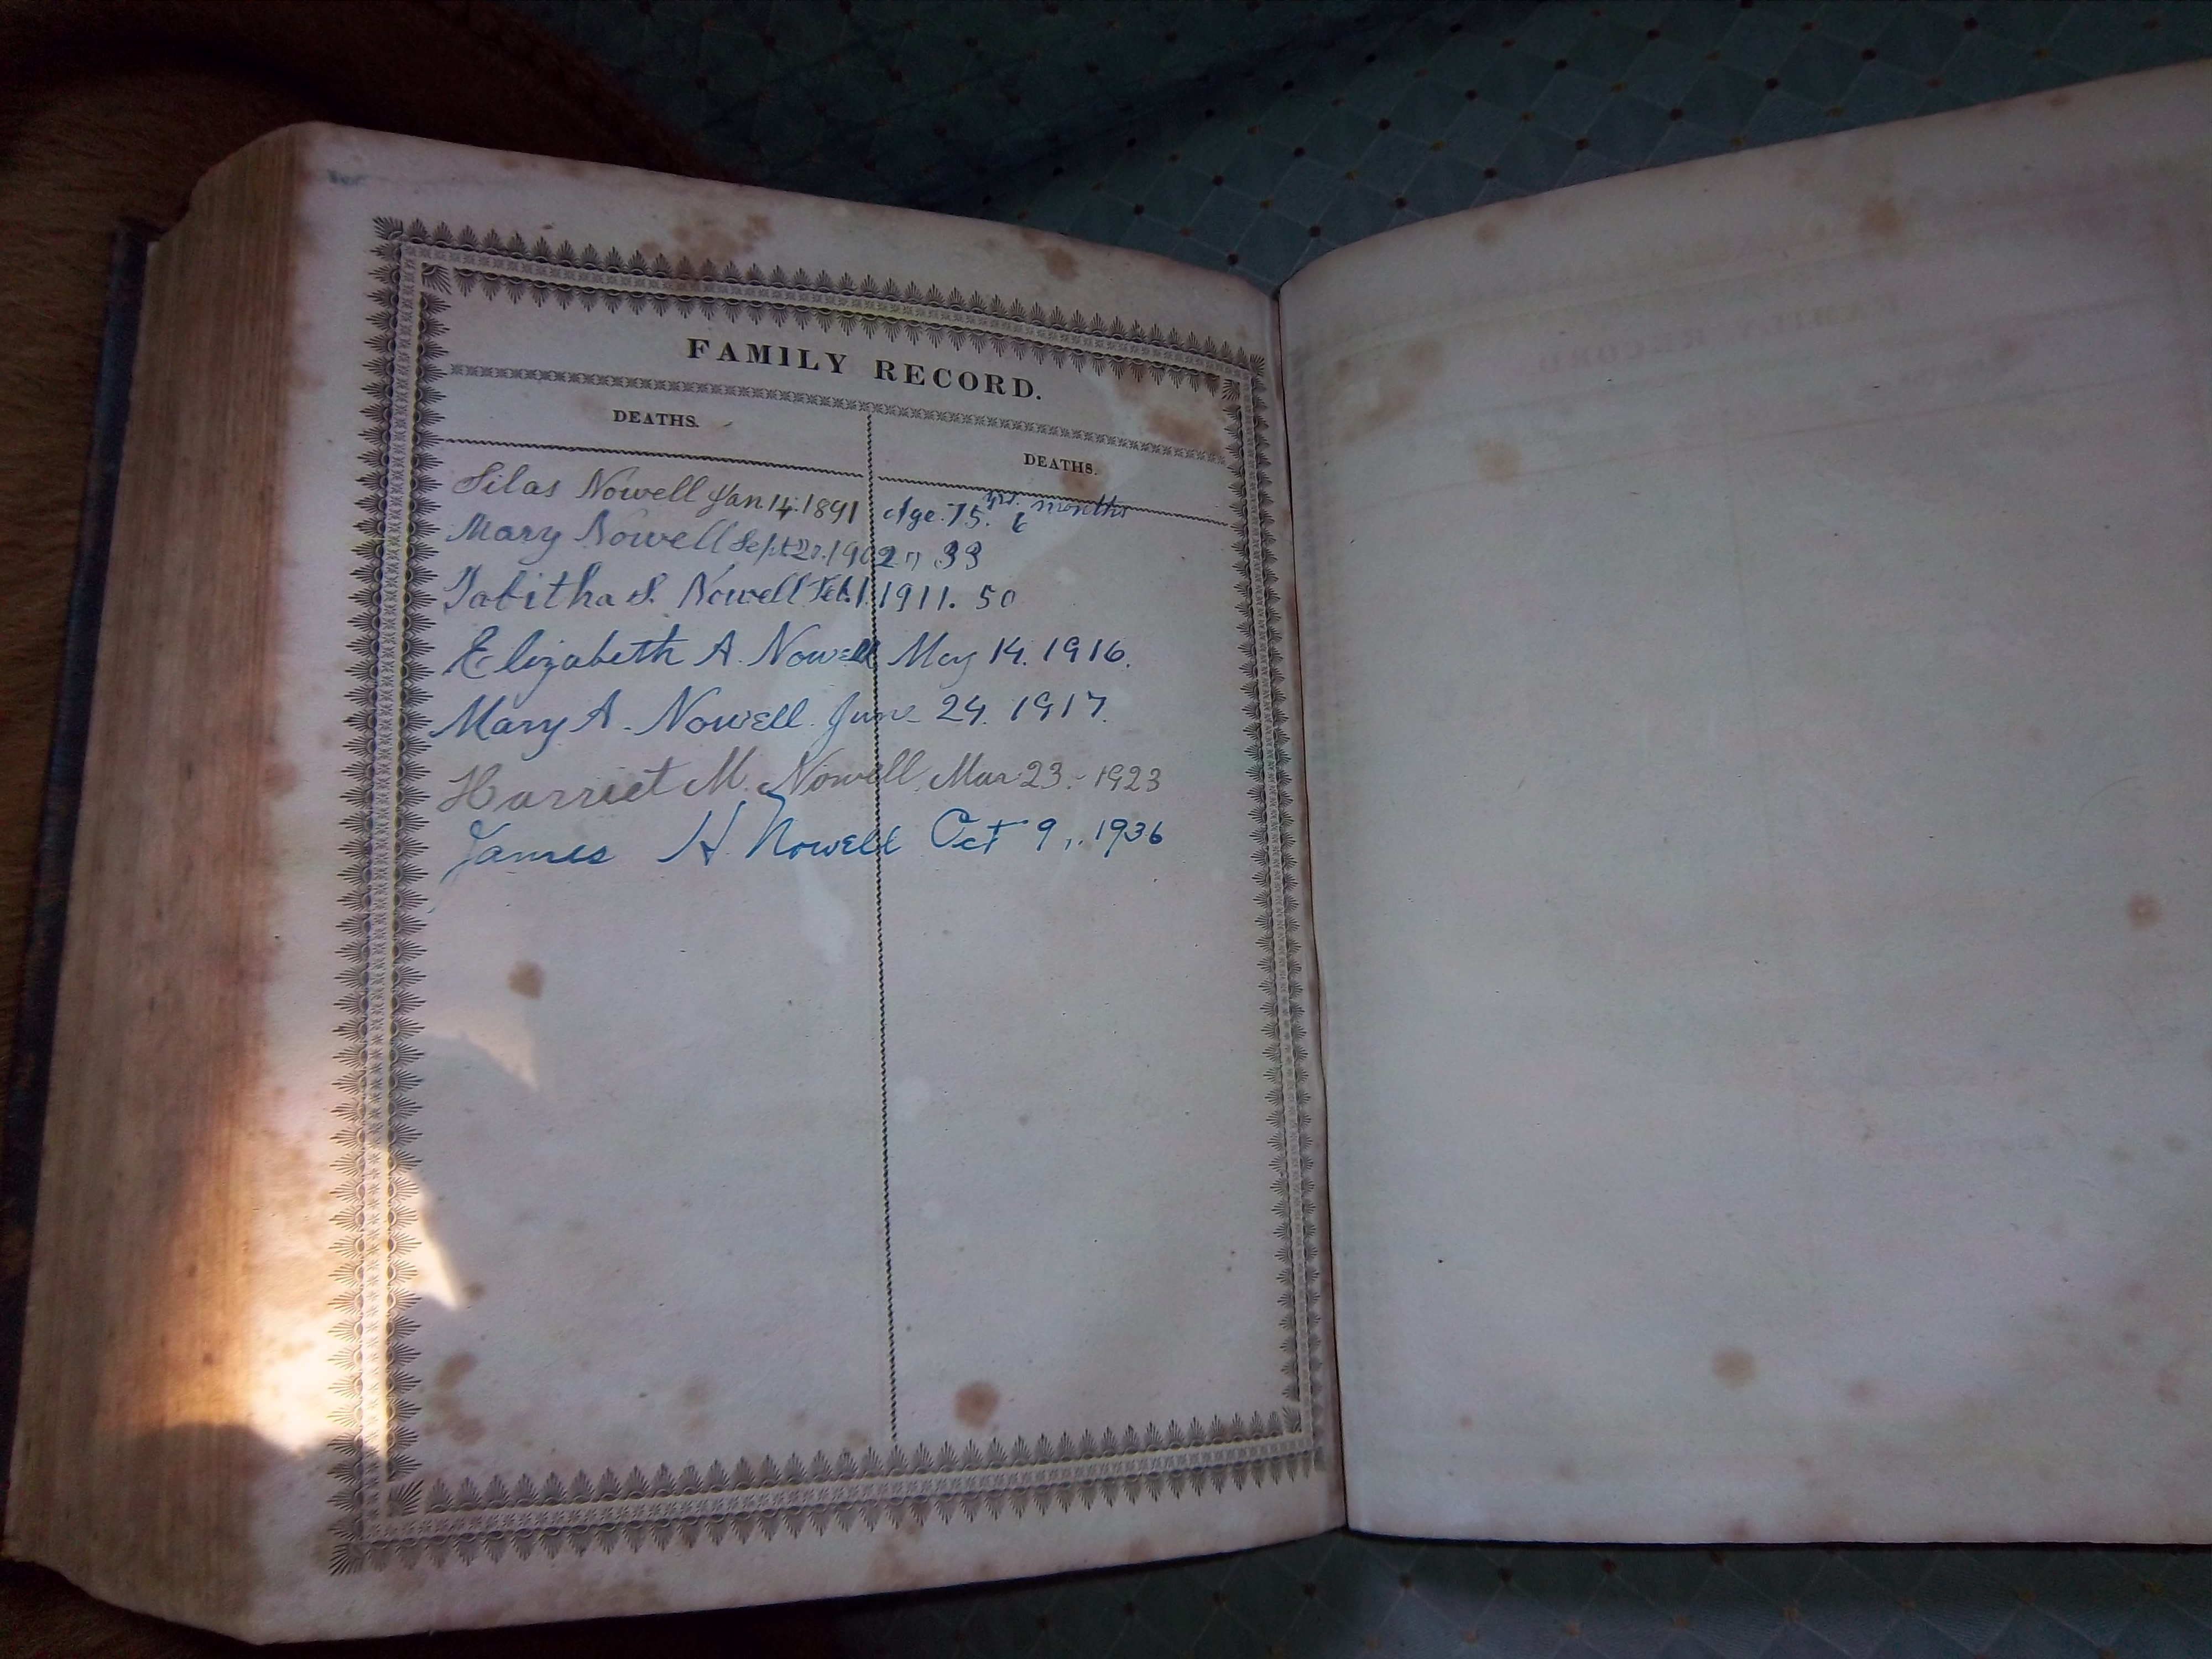 FAMILY RECORD.
DEATHS.
DEATHS.
Silas Nowell Jan. 14. 1891 Age. 75. yrs. 6 months
Mary Nowell Sept 1902 " 83
Tabitha S. Nowell Feb. 1. 1911. 50
Elizabeth A. Nowell May 14. 1916.
Mary A. Nowell. June 24. 1917.
Harriet M. Nowell. Mar 23. - 1923
James H. Nowell Oct 9, 1936
FAMILY RECORD